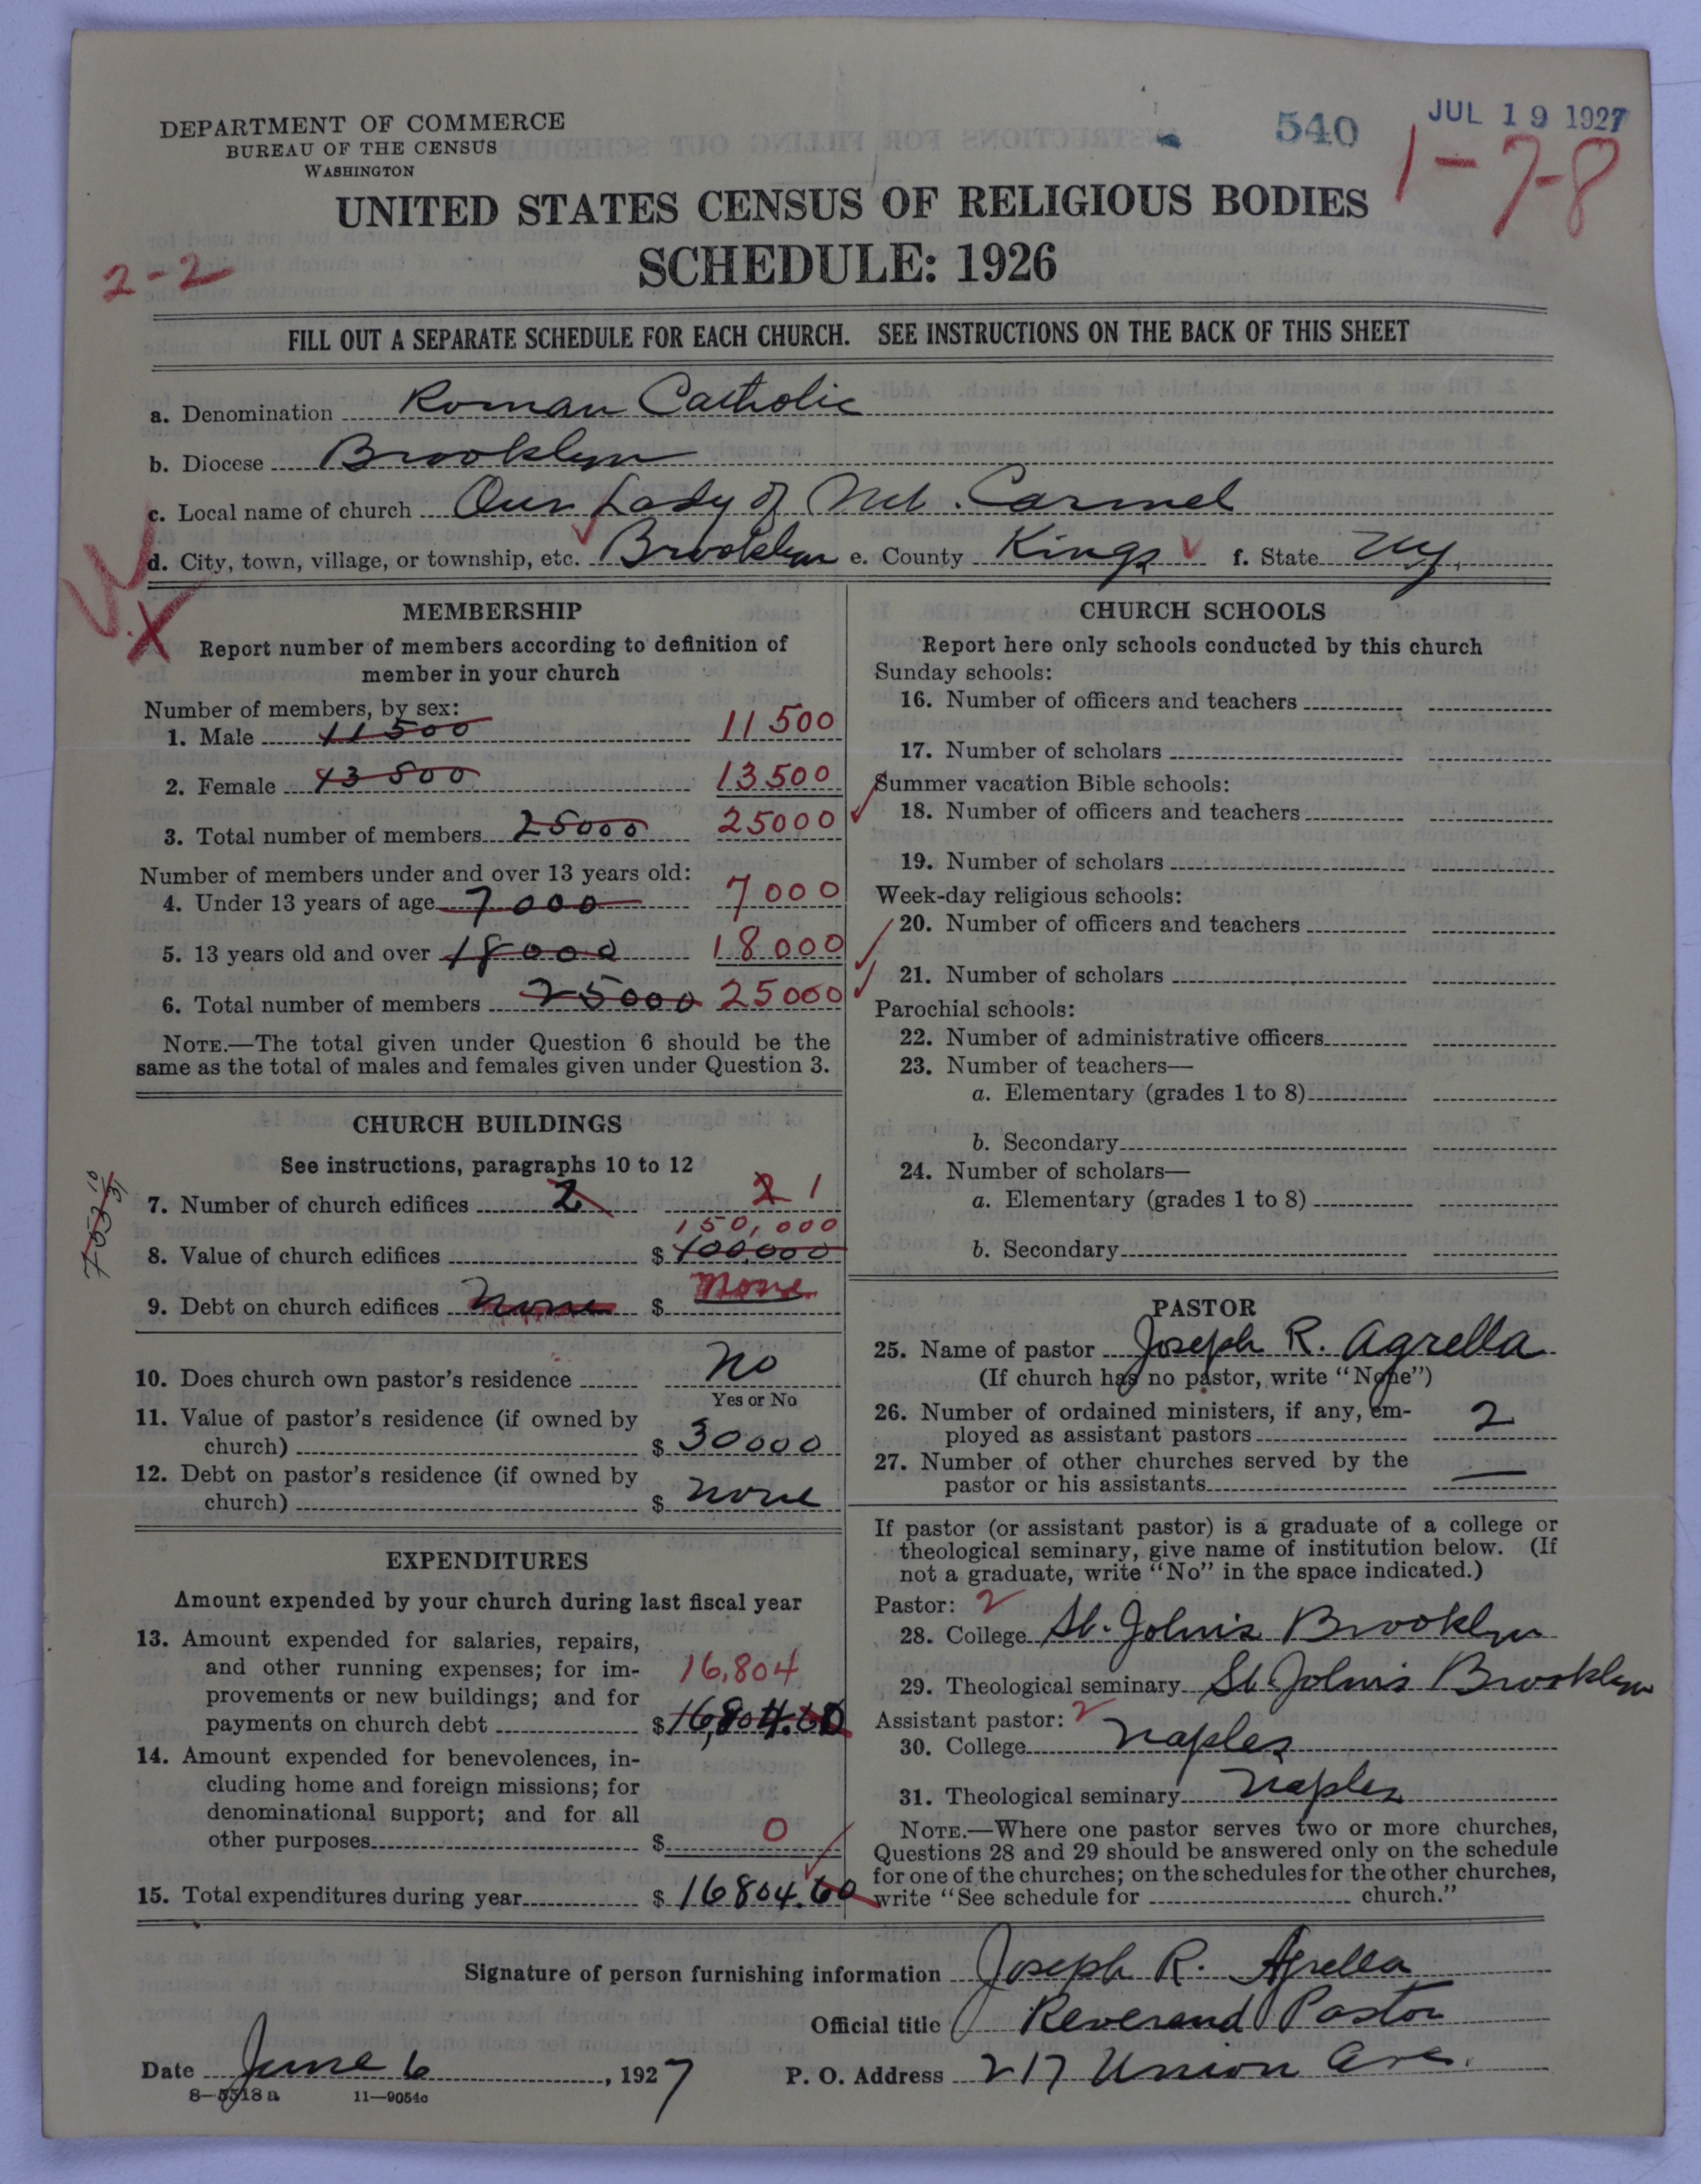 DEPARTMENT OF COMMERCE
BUREAU OF THE CENSUS
WASHINGTON
540
JUL 19 1927
1-7-8
UNITED STATES CENSUS OF RELIGIOUS BODIES
SCHEDULE: 1926
2-2
FILL OUT A SEPARATE SCHEDULE FOR EACH CHURCH. SEE INSTRUCTIONS ON THE BACK OF THIS SHEET
a. Denomination Roman Catholic
b. Diocese Brooklyn
c. Local name of church Our Lady of Mt. Carmel
d. City, town, village, or township, etc. Brooklyn e. County Kings f. State NY.
MEMBERSHIP
Report number of members according to definition of
member in your church
Number of members, by sex:
1. Male 11500 11500
2. Female 13500 13500
3. Total number of members 25000 25000
Number of members under and over 13 years old:
4. Under 13 years of age 7000 7000
5. 13 years old and over 18000 18000
6. Total number of members 25000 25000
NOTE.—The total given under Question 6 should be the
same as the total of males and females given under Question 3.
CHURCH BUILDINGS
See instructions, paragraphs 10 to 12
7. Number of church edifices 2 2 1
150,000
8. Value of church edifices $ 100,000
9. Debt on church edifices none $ none
10. Does church own pastor's residence no
Yes or No
11. Value of pastor's residence (if owned by
church) $ 30000
12. Debt on pastor's residence (if owned by
church) $ none
EXPENDITURES
Amount expended by your church during last fiscal year
13. Amount expended for salaries, repairs,
and other running expenses; for im- 16,804
provements or new buildings; and for
payments on church debt $ 16,804.60
14. Amount expended for benevolences, in-
cluding home and foreign missions; for
denominational support; and for all
other purposes $ 0
15. Total expenditures during year $ 16804.60
CHURCH SCHOOLS
Report here only schools conducted by this church
Sunday schools:
16. Number of officers and teachers
17. Number of scholars
Summer vacation Bible schools:
18. Number of officers and teachers
19. Number of scholars
Week-day religious schools:
20. Number of officers and teachers
21. Number of scholars
Parochial schools:
22. Number of administrative officers
23. Number of teachers—
a. Elementary (grades 1 to 8)
b. Secondary
24. Number of scholars—
a. Elementary (grades 1 to 8)
b. Secondary
PASTOR
25. Name of pastor Joseph R. Agrella
(If church has no pastor, write "None")
26. Number of ordained ministers, if any, em-
ployed as assistant pastors 2
27. Number of other churches served by the
pastor or his assistants —
If pastor (or assistant pastor) is a graduate of a college or
theological seminary, give name of institution below. (If
not a graduate, write "No" in the space indicated.)
Pastor: 2
28. College St. John's Brooklyn
29. Theological seminary St John's Brooklyn
Assistant pastor: 2
30. College Naples
31. Theological seminary Naples
NOTE.—Where one pastor serves two or more churches,
Questions 28 and 29 should be answered only on the schedule
for one of the churches; on the schedules for the other churches,
write "See schedule for church."
Signature of person furnishing information Joseph R. Agrella
Official title Reverend Pastor
Date June 6, 1927 P. O. Address 217 Union Ave.
8-5518a 11-9054c